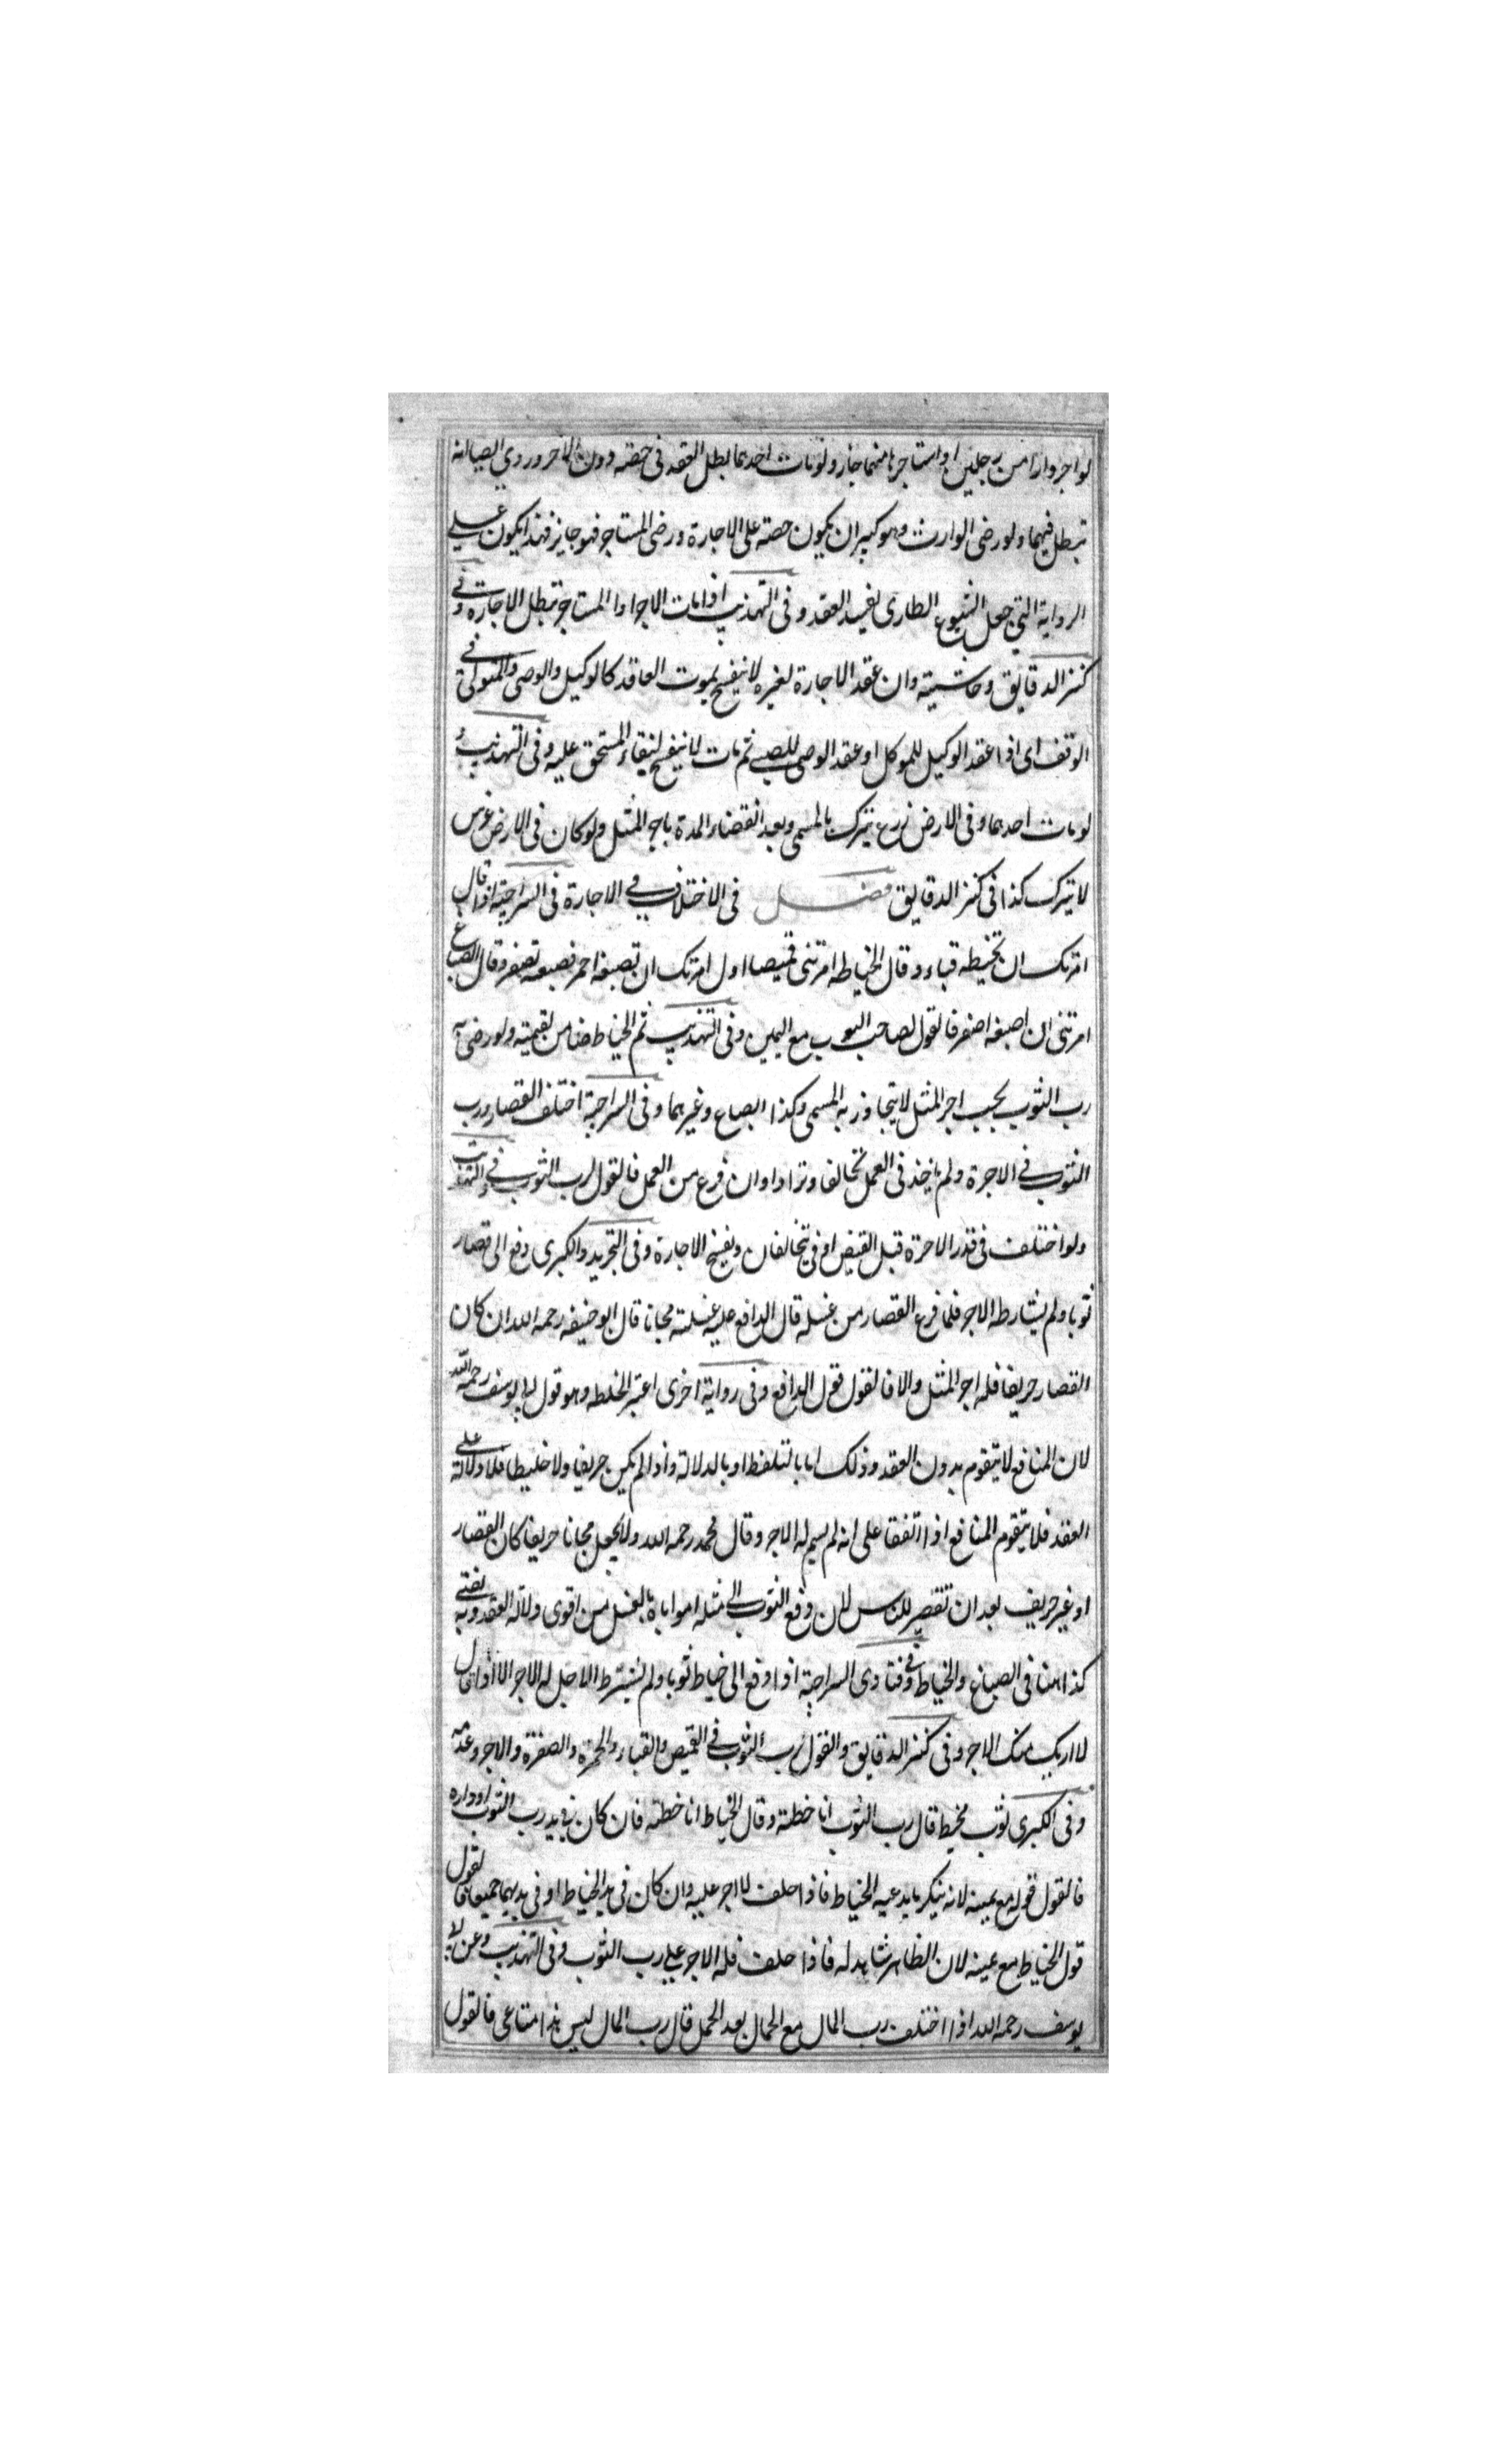 لو اجر دارا من رجلين او استاجرها منهما جاز ولو مات احدهما بطل العقد فى حصته دون الاخر وروي ايضا انه
تبطل فيهما ولو رضى الوارث وهو كبير ان يكون حصته على الاجارة ورضى المستاجر فهو جايز فهذا يكون على
الرواية التى جعل الشيوع الطارى يفسد العقد وفى التهذيب اذا مات الاجر او المستاجر تبطل الاجارة وفى
كنز الدقايق وحاشيته وان عقد الاجارة لغيره لا ينفسخ بموت العاقد كالوكيل والوصى والمتولى فى
الوقف اى اذا عقد الوكيل للموكل او عقد الوصى للصبى ثم مات لا ينفسخ لبقاء المستحق عليه وفى التهذيب و
لو مات احدهما وفى الارض زرع يترك بالمسمى وبعد انقضاء المدة باجر المثل ولو كان فى الارض غرس
لا يترك كذا فى كنز الدقايق فصل فى الاختلاف فى الاجارة فى السراجية اذا قال
امرتك ان تخيطه قباء وقال الخياط امرتنى قميصا او ل امرتك ان تصبغه احمر فصبغه تصفر وقال الصباغ
امرتنى ان اصبغه اصفر فالقول لصاحب الثوب مع اليمين وفى التهذيب ثم الخياط ضامن لقيمته ولو رضى به
رب الثوب يجب اجر المثل لا يتجاوز به المسمى وكذا الصباغ وغيرهما وفى السراجية اختلف القصار ورب
الثوب فى الاجرة ولم ياخذ فى العمل تحالفا وترادا وان فرغ من العمل فالقول لرب الثوب وفى التهذيب
ولو اختلف فى قدر الاجرة قبل القبض او فى يتحالفان ويفسخ الاجارة وفى التجريد والكبرى دفع الى قصار
ثوبا ولم يشارطه الاجر فلما فرغ القصار من غسله قال الدافع عليه غسلته مجانا قال ابو حنيفه رحمه الله ان كان
القصار حريفا فله اجر المثل والا فالقول قول الدافع وفى رواية اخرى اعتبر الخلطه وهو قول ابى يوسف رحمه الله
لان المنافع لا يتقوم بدون العقد وذلك اما بالتلفظ او بالدلالة واذا لم يكن حريفا ولا خليطا فلا دلالة على
العقد فلا يتقوم المنافع اذا اتفقا على انه لم يسم له الاجر وقال محمد رحمه الله ولا يجعل مجانا حريفا كان القصار
او غير حريف بعد ان تقصير للناس لان دفع الثوب الى مثله امرا اياه بالغسل من اقوى دلالة العقد وبه يفتى
كذا هنا فى الصباغ والخياط وفى فتاوى السراجية اذا دفع الى خياط ثوبا ولم يشترط الاجل له الاجر الا اذا قال
لا اريك منك الاجر وفى كنز الدقايق والقول لرب الثوب فى القميص والقباء والحمرة والصفرة والاجر وعدمه
وفى الكبرى ثوب مخيط قال رب الثوب انا خطته وقال الخياط انا خطته فان كان فى يد رب الثوب او داره
فالقول قوله مع يمينه لانه ينكر ما يدعيه الخياط فاذا حلف لا اجر عليه وان كان فى يد الخياط او فى يديهما جميعا فالقول
قول الخياط مع يمينه لان الظاهر شاهد له فاذا حلف فله الاجر على رب الثوب وفى التهذيب وعن ابى
يوسف رحمه الله اذا اختلف رب المال مع الحمال بعد الحمل قال رب المال ليس هذا متاعى فالقول